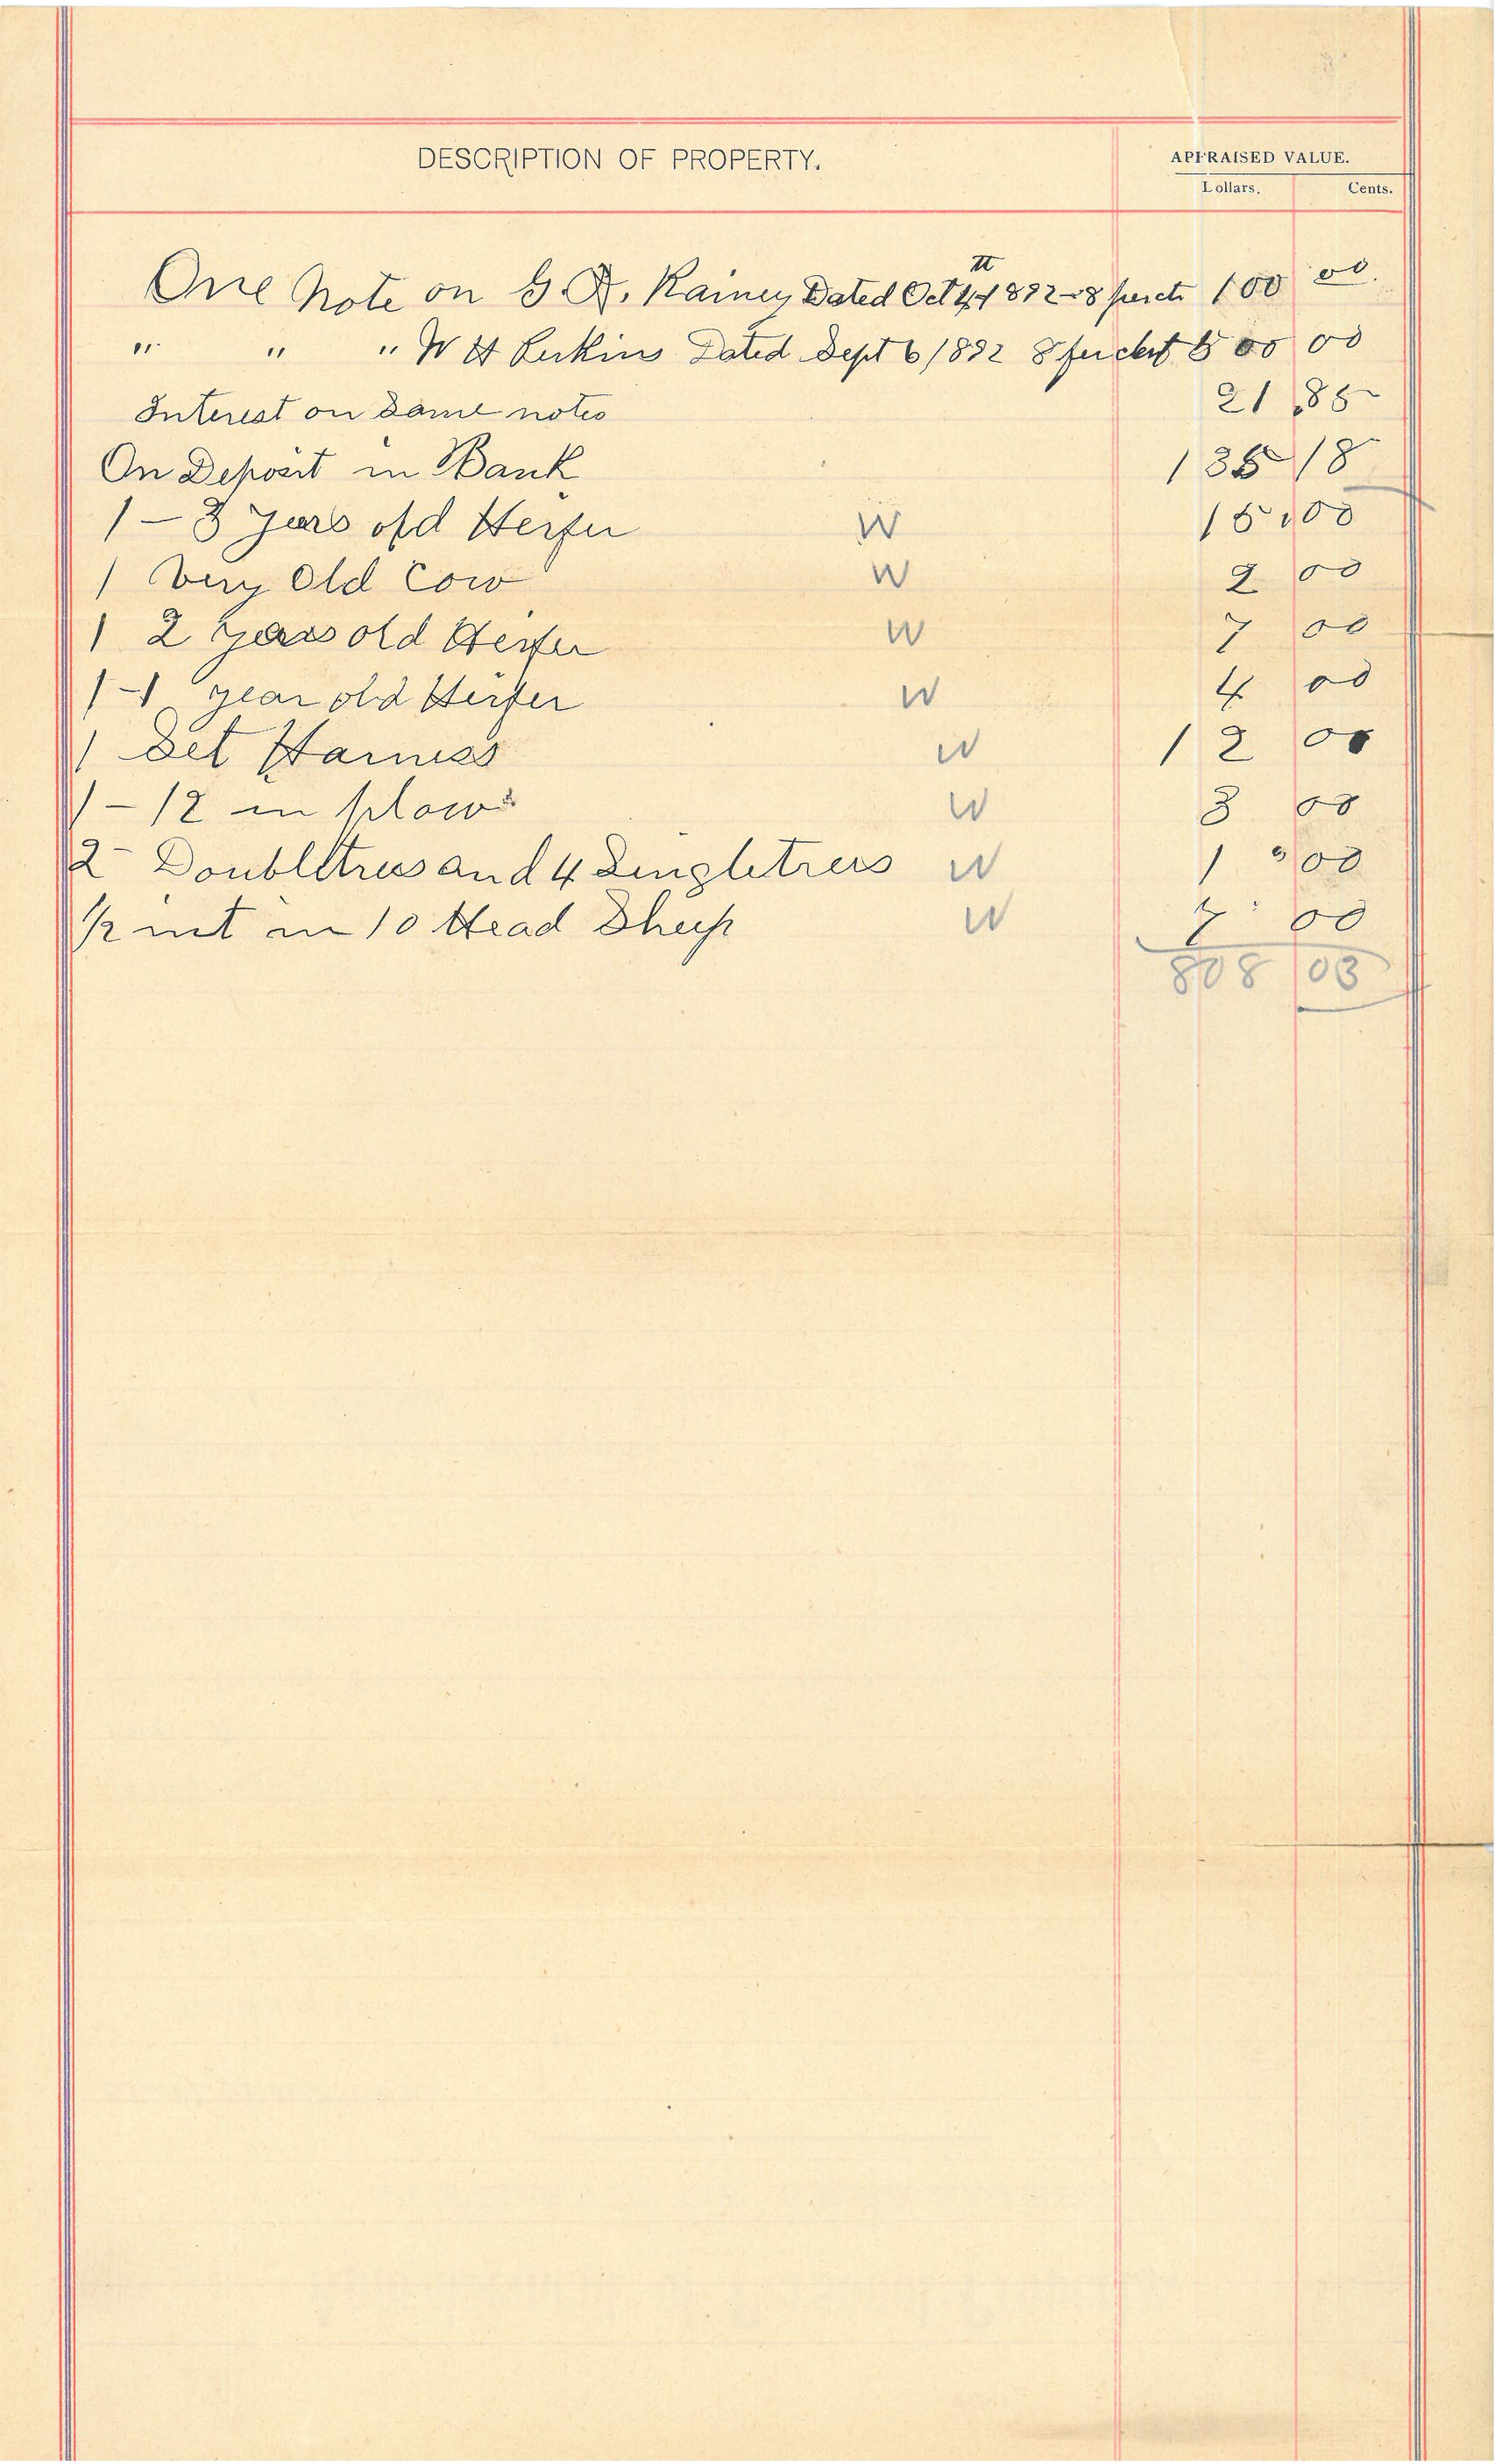 DESCRIPTION OF PROPERTY. APPRAISED VALUE.
Dollars. Cents.
One Note on G. A. Rainey Dated Oct 4th 1892 - 8 perct 100 00.
" " " W H Perkins Dated Sept 6 1892 8 per cent 500 00
Interest on Same notes 21.85
On Deposit in Bank 135 18
1 - 3 years old Heifer W 15.00
1 Very Old Cow W 2 00
1 2 years old Heifer W 7 00
1 - 1 year old Heifer W 4 00
1 Set Harness W 12 00
1 - 12 in plow W 3 00
2 - Doubletrees and 4 Singletrees W 1 00
1/2 int in 10 Head Sheep W 7 00
808 03